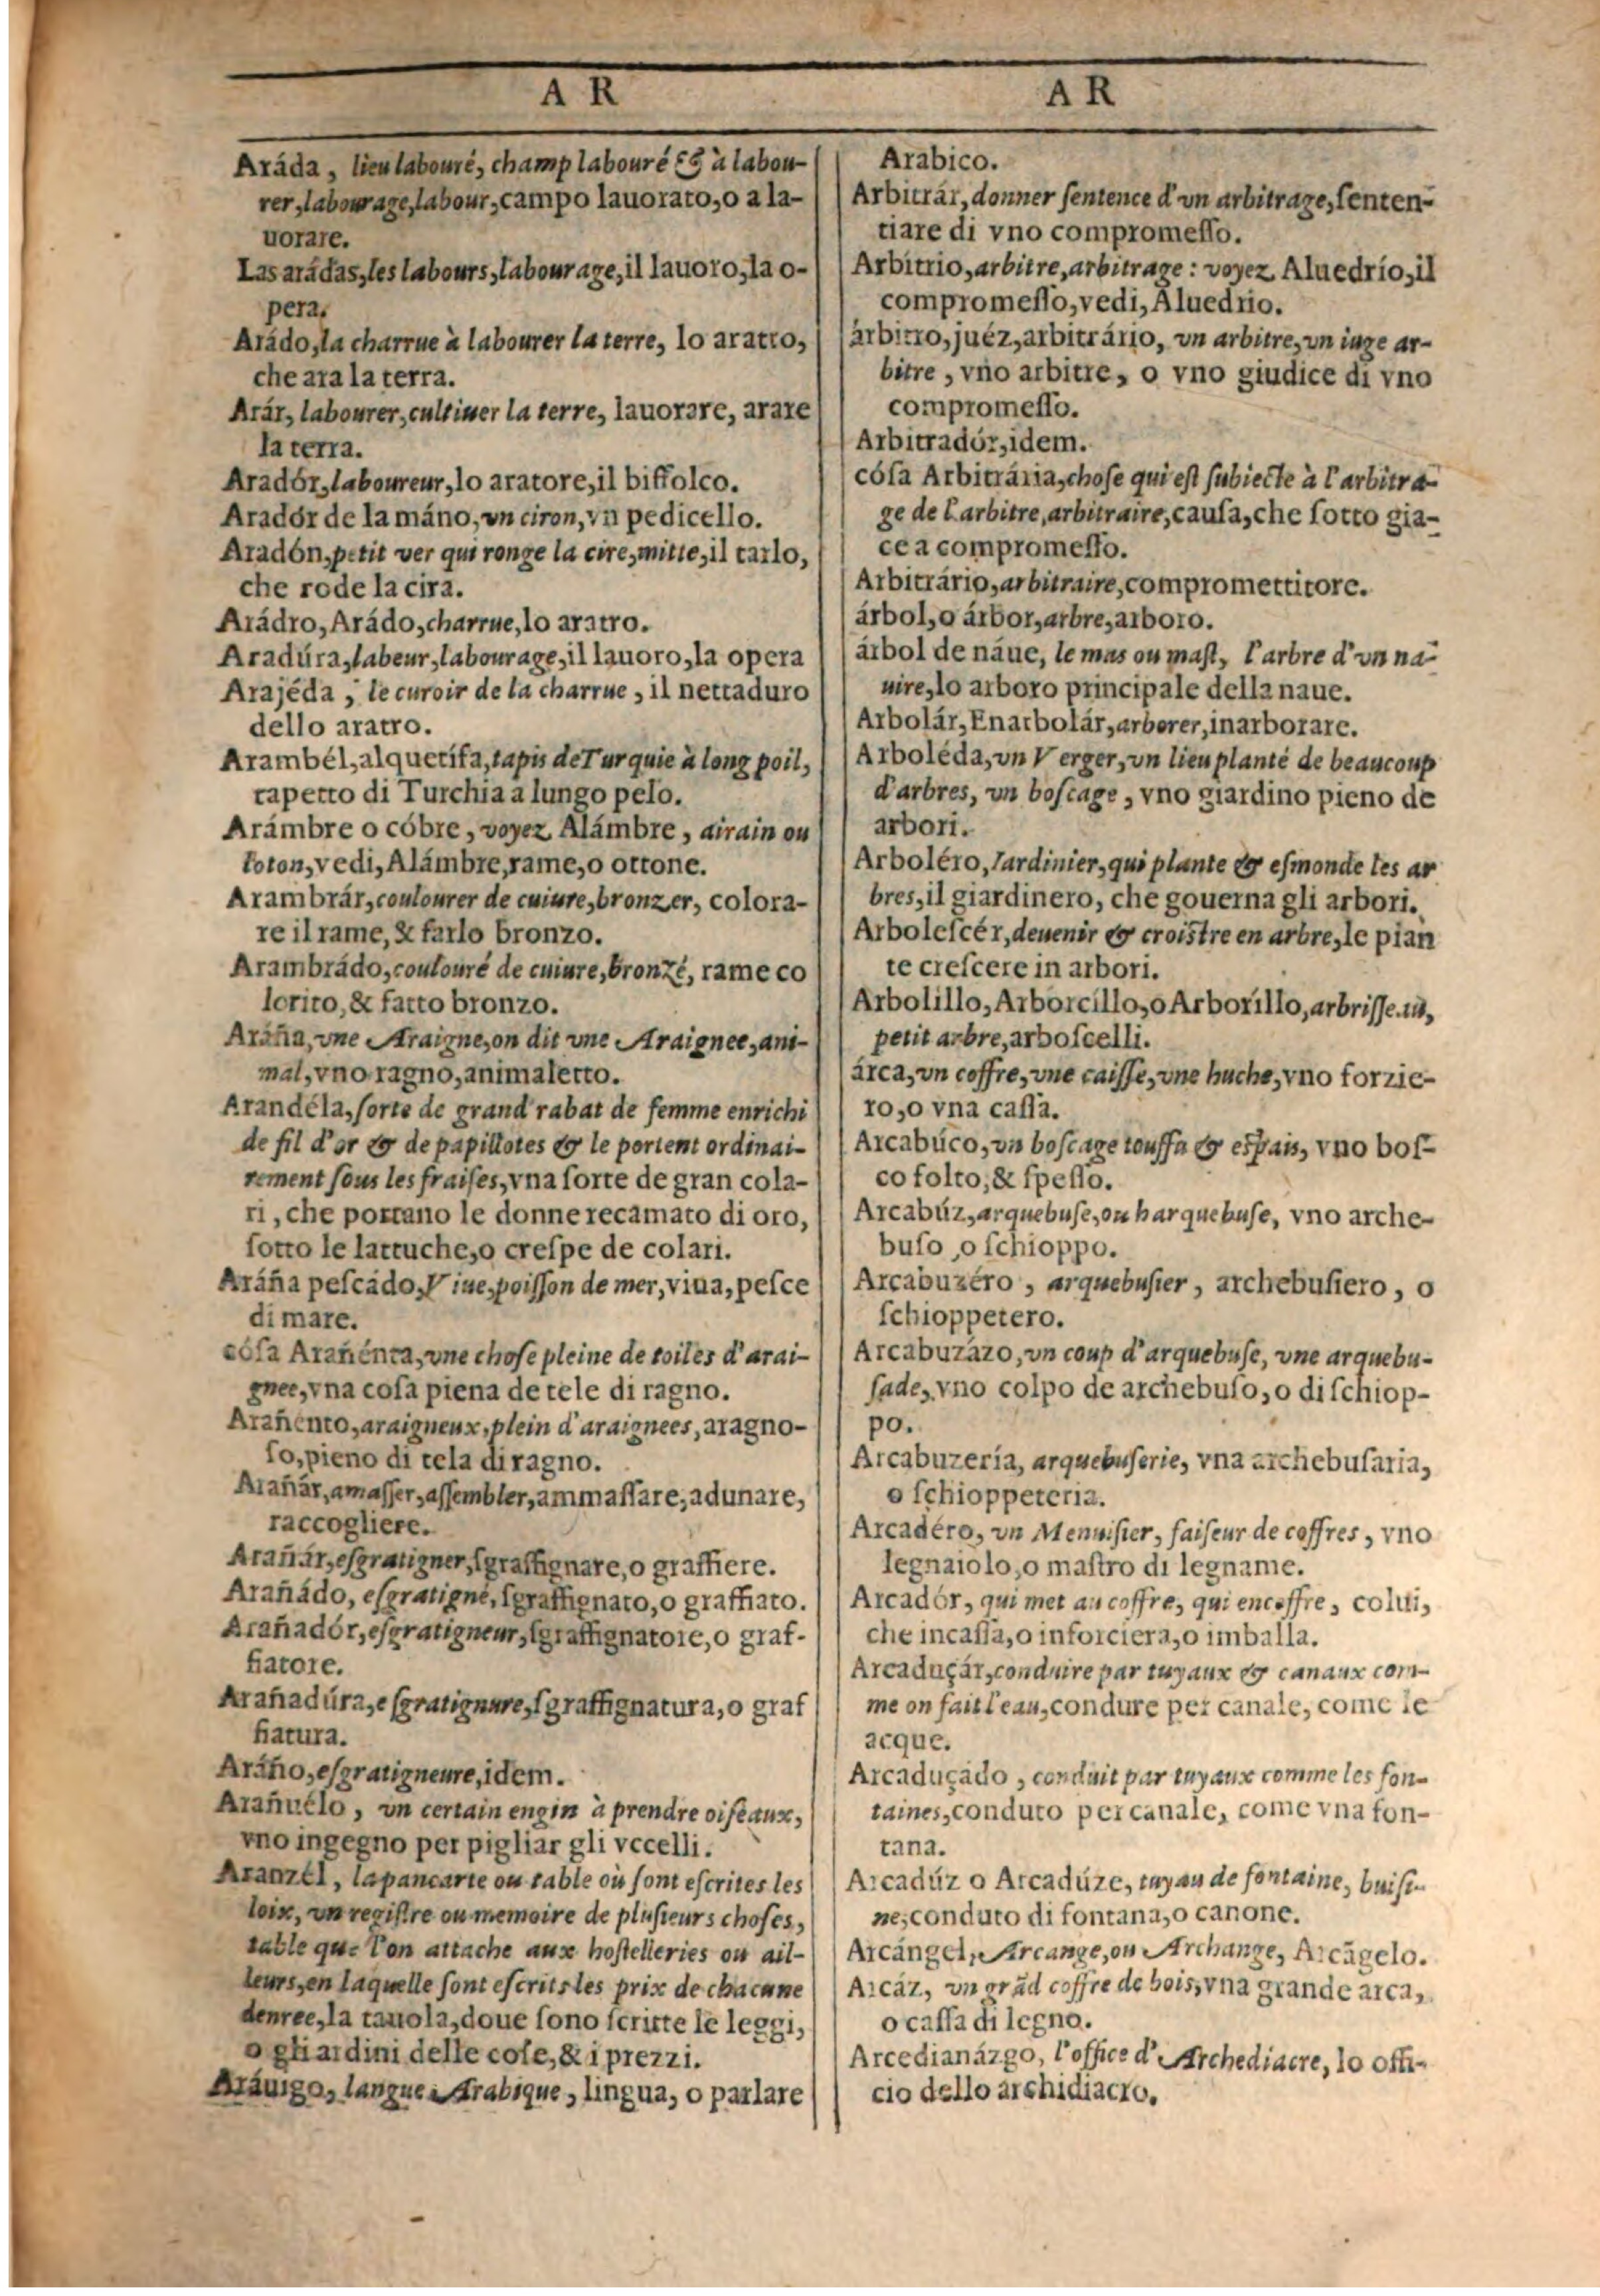 A R
Aráda, lieu labouré, champ labouré & à labou-
rer, labourage, labour, campo lauorato, o a la-
uorare.
Las arádas, les labours, labourage, il lauoro, la o-
pera.
Arádo, la charrue à labourer la terre, lo aratto,
che ara la terra.
Arár, labourer, cultiuer la terre, lauorare, arare
la terra.
Aradór, laboureur, lo aratore, il biffolco.
Aradór de la máno, vn ciron, vn pedicello.
Aradón, petit ver qui ronge la cire, mitte, il tarlo,
che rode la cira.
Arádro, Arádo, charrue, lo aratro.
Aradúra, labeur, labourage, il lauoro, la opera
Arajéda, le curoir de la charrue, il nettaduro
dello aratro.
Arambél, alquetífa, tapis de Turquie à long poil,
tapetto di Turchia a lungo pelo.
Arámbre o cóbre, voyez Alámbre, airain ou
loton, vedi, Alámbre, rame, o ottone.
Arambrár, coulourer de cuiure, bronzer, colora-
re il rame, & farlo bronzo.
Arambrádo, coulouré de cuiure, bronzé, rame co
lorito, & fatto bronzo.
Aráña, vne Araigne, on dit vne Araignee, ani-
mal, vno ragno, animaletto.
Arandéla, ſorte de grand rabat de femme enrichi
de fil d'or & de papillotes & le portent ordinai-
rement ſous les fraiſes, vna ſorte de gran cola-
ri, che portano le donne recamato di oro,
ſotto le lattuche, o creſpe de colari.
Aráña peſcádo, Viue, poiſſon de mer, viua, peſce
di mare.
cóſa Arañénta, vne choſe pleine de toiles d'arai-
gnee, vna coſa piena de tele di ragno.
Arañento, araigneux, plein d'araignees, aragno-
ſo, pieno di tela di ragno.
Arañár, amaſſer, aſſembler, ammaſſare, adunare,
raccogliere.
Arañár, eſgratigner, ſgraffignare, o graffiere.
Arañádo, eſgratigné, ſgraffignato, o graffiato.
Arañadór, eſgratigneur, ſgraffignatore, o graf-
fiatore.
Arañadúra, eſgratignure, ſgraffignatura, o graf
fiatura.
Aráño, eſgratigneure, idem.
Arañuélo, vn certain engin à prendre oiſeaux,
vno ingegno per pigliar gli vccelli.
Aranzél, la pancarte ou table où ſont eſcrites les
loix, vn regiſtre ou memoire de pluſieurs choſes,
table que l'on attache aux hoſtelleries ou ail-
leurs, en laquelle ſont eſcrits les prix de chacune
denree, la tauola, doue ſono ſcritte le leggi,
o gli ardini delle coſe, & i prezzi.
Aráuigo, langue Arabique, lingua, o parlare
A R
Arabico.
Arbitrár, donner ſentence d'vn arbitrage, ſenten-
tiare di vno compromeſſo.
Arbitrio, arbitre, arbitrage : voyez Aluedrío, il
compromeſſo, vedi, Aluedrio.
árbitro, juéz, arbitrário, vn arbitre, vn iuge ar-
bitre, vno arbitre, o vno giudice di vno
compromeſſo.
Arbitradór, idem.
cóſa Arbitrária, choſe qui eſt ſubiecte à l'arbitra-
ge de l'arbitre, arbitraire, cauſa, che ſotto gia-
ce a compromeſſo.
Arbitrário, arbitraire, compromettitore.
árbol, o árbor, arbre, arboro.
árbol de náue, le mas ou maſt, l'arbre d'vn na-
uire, lo arboro principale della naue.
Arbolár, Enarbolár, arborer, inarborare.
Arboléda, vn Verger, vn lieu planté de beaucoup
d'arbres, vn boſcage, vno giardino pieno de
arbori.
Arboléro, Iardinier, qui plante & eſmonde les ar
bres, il giardinero, che gouerna gli arbori.
Arboleſcér, deuenir & croiſtre en arbre, le pian
te creſcere in arbori.
Arbolillo, Arborcíllo, o Arboríllo, arbriſſeau,
petit arbre, arboſcelli.
árca, vn coffre, vne caiſſe, vne huche, vno forzie-
ro, o vna caſſa.
Arcabúco, vn boſcage touffu & eſpais, vno boſ-
co folto, & ſpeſſo.
Arcabúz, arquebuſe, ou harquebuſe, vno arche-
buſo, o ſchioppo.
Arcabuzéro, arquebuſier, archebuſiero, o
ſchioppetero.
Arcabuzázo, vn coup d'arquebuſe, vne arquebu-
ſade, vno colpo de archebuſo, o di ſchiop-
po.
Arcabuzería, arquebuſerie, vna archebuſaria,
o ſchioppeteria.
Arcadéro, vn Menuiſier, faiſeur de coffres, vno
legnaiolo, o maſtro di legname.
Arcadór, qui met au coffre, qui encoffre, colui,
che incaſſa, o inforciera, o imballa.
Arcaduçár, conduire par tuyaux & canaux com-
me on fait l'eau, condure per canale, come le
acque.
Arcaduçádo, conduit par tuyaux comme les fon-
taines, conduto per canale, come vna fon-
tana.
Arcadúz o Arcadúze, tuyau de fontaine, buiſi-
ne, conduto di fontana, o canone.
Arcángel, Arcange, ou Archange, Arcãgelo.
Arcáz, vn grãd coffre de bois, vna grande arca,
o caſſa di legno.
Arcedianázgo, l'office d'Archediacre, lo offi-
cio dello archidiacro.